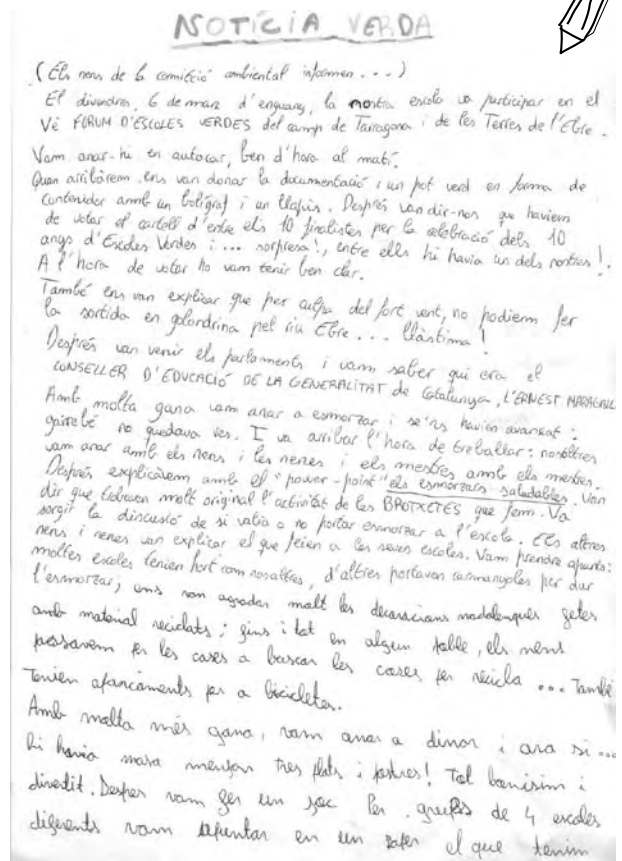 NOTÍCIA VERDA
(Els nens de la comissió ambiental informen...)
El divendres, 6 de març d'enguany, la nostra escola va participar en el
Vè FÒRUM D'ESCOLES VERDES del camp de Tarragona i de les Terres de l'Ebre.
Vam anar-hi en autocar, ben d'hora al matí.
Quan arribàrem ens van donar la documentació i un pot verd en forma de
contenidor amb un bolígraf i un llapis. Després van dir-nos que havíem
de votar el cartell d'entre els 10 finalistes per la celebració dels 10
anys d'Escoles Verdes i... sorpresa!, entre ells hi havia un dels nostres!.
A l'hora de votar ho vam tenir ben clar.
També ens van explicar que per culpa del fort vent, no podíem fer
la sortida en golondrina pel riu Ebre... Llàstima!
Després van venir els parlaments i vam saber qui era el
CONSELLER D'EDUCACIÓ DE LA GENERALITAT de Catalunya, L'ERNEST MARAGALL
Amb molta gana vam anar a esmorzar i se'ns havien avançat:
gairebé no quedava res. I va arribar l'hora de treballar: nosaltres
vam anar amb els nens i les nenes i els mestres amb els mestres.
Després explicàrem amb el "power-point" els esmorzars saludables. Van
dir que trobaven molt original l'activitat de les BROTXETES que fem. Va
sorgir la discusió de si valia o no portar esmorzar a l'escola. Els altres
nens i nenes van explicar el que feien a les seves escoles. Vam prendre apunts:
moltes escoles tenien hort com nosaltres, d'altres portaven carmanyoles per dur
l'esmorzar; ens van agradar molt les decoracions nadalenques fetes
amb material reciclats; fins i tot en algun poble, els nens
passaven per les cases a buscar les coses per recicla... També
Tenien aparcaments per a bicicletes.
Amb molta més gana, vam anar a dinar i ara si...
hi havia masa menjar tres plats i postres! Tot bonísim i
divedit. Despes vam fer un joc Per grups de 4 escoles
diferents vam apuntar en un paper el que tenim